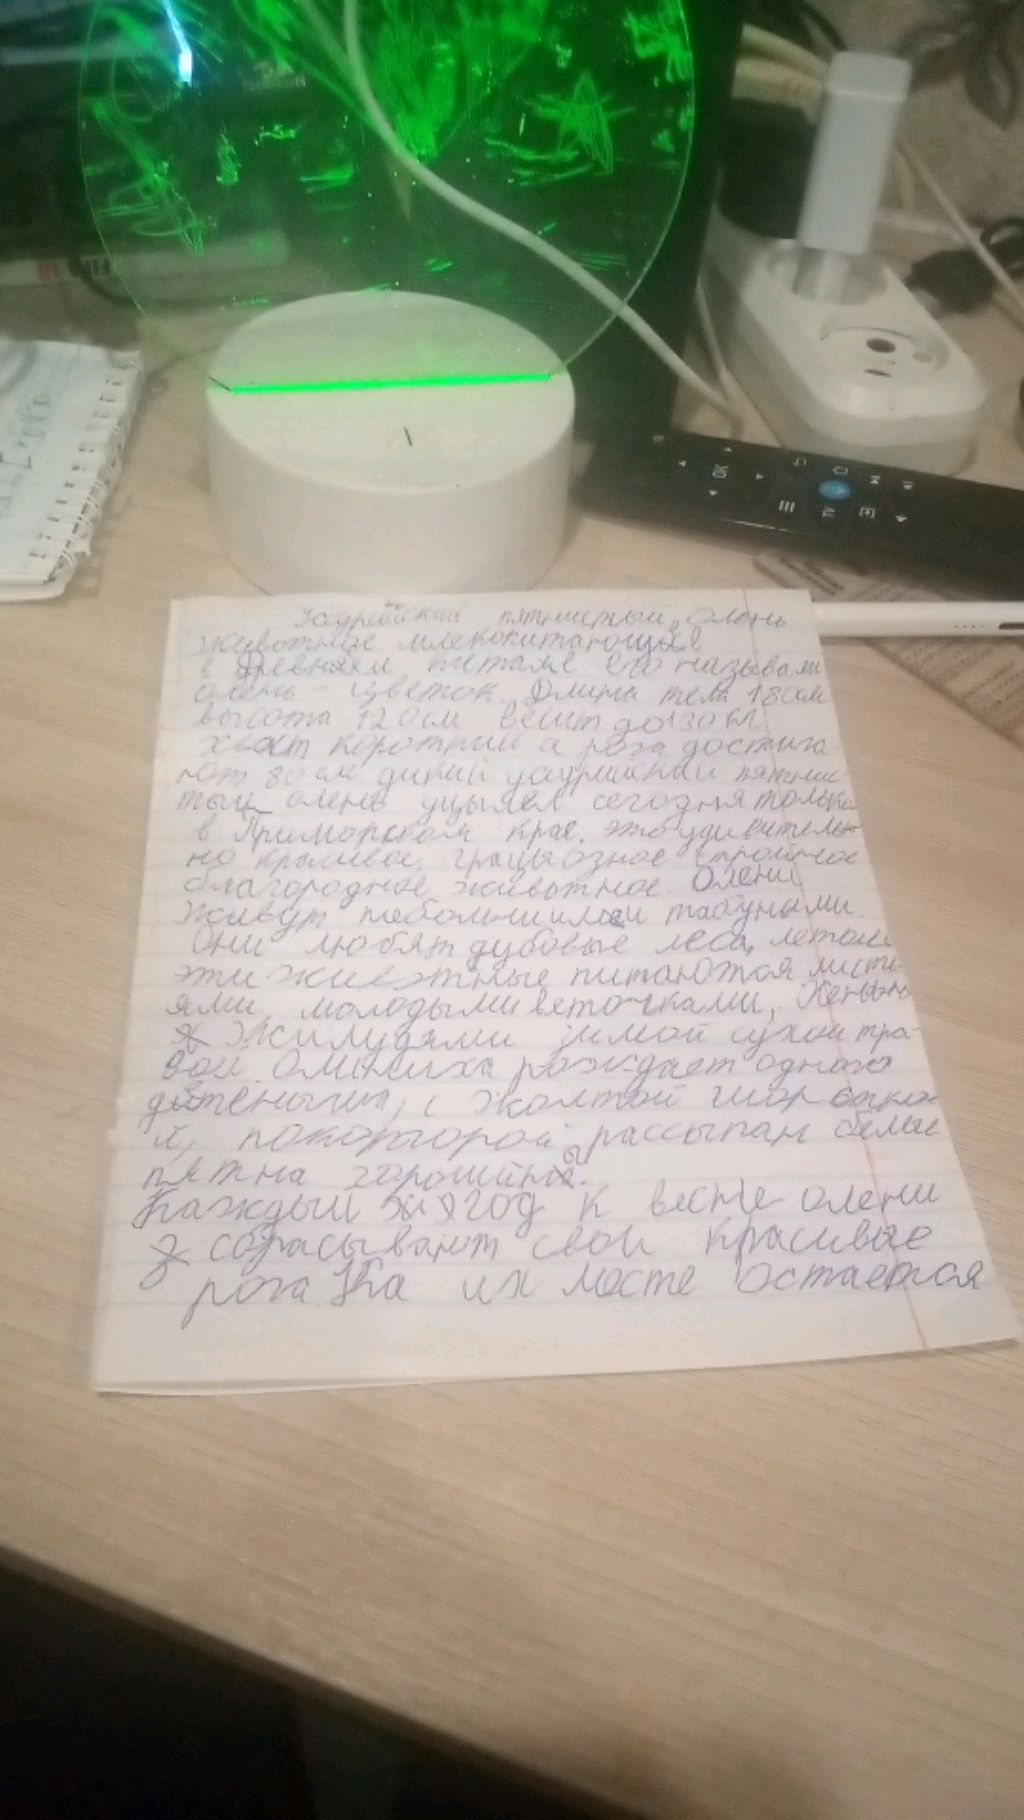 Уссурийский пятнистый олень
Животное млекопитающее
в Древнем питале его называли
олень - цветок. Длина тела 18 см
высота 120 см весит до 130 кг
хвост короткий а рога достига-
ют 80 см дикий уссурийский пятнис-
тый олень уцелел сегодня только
в Приморском крае. это удивитель-
но красивое, грациозное стройное
благородное животное. Олени
Живут небольшими табунами.
Они любят дубовые леса, летом
эти животные питаются листь-
ями, молодыми веточками,
Жилудями зимой сухой тра-
вой. Олениха рождает одного
детеныша, с жолтой шорстко-
й, покоторой рассыпан белые
пятна горошина.
Каждый год к весне олени
сбрасывают свои красивые
рога На их месте остаётся